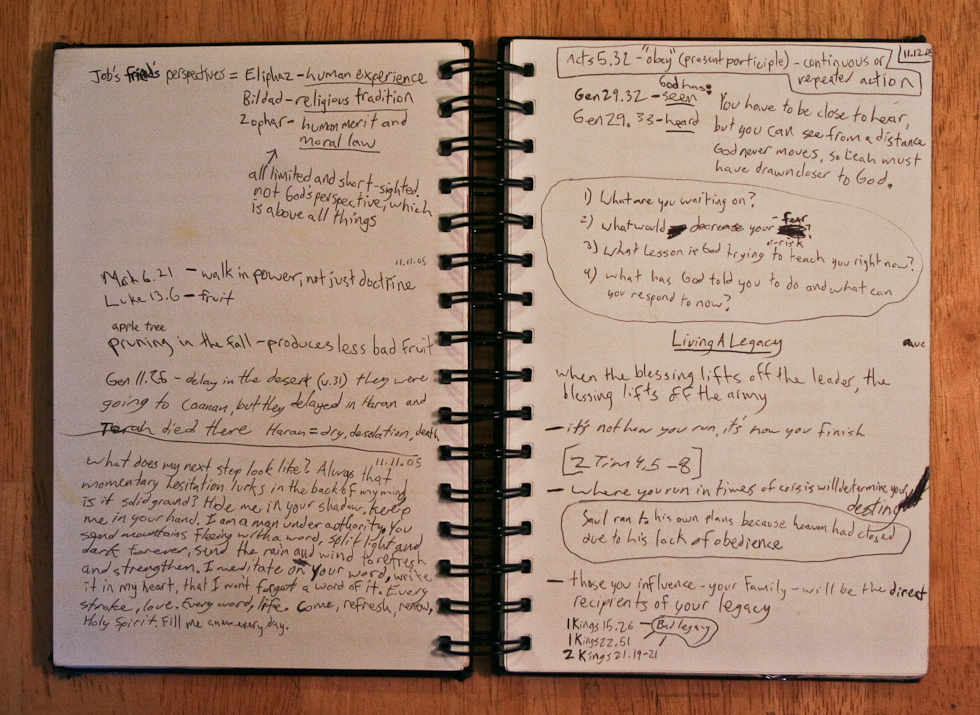 Job's friend's perspectives = Eliphaz - human experience
Bildad - religious tradition
Zophar - human merit and
moral law
all limited and short-sighted,
not God's perspective, which
is above all things
11.11.05
Mark 6.21 - walk in power, not just doctrine
Luke 13.6 - fruit
apple tree
pruning in the fall - produces less bad fruit
Gen 11.28 - delay in the desert (v.31) they were
going to Caanan, but they delayed in Haran and
Terah died there Haran = dry, desolation, death
11.11.05
What does my next step look like? Always that
momentary hesitation lurks in the back of my mind
is it solid ground? Hide me in your shadow, keep
me in your hand. I am a man under authority. You
send mountains fleeing with a word, split light and
dark forever, send the rain and wind to refresh
and strengthen. I meditate on your word, write
it in my heart, that I won't forget a word of it. Every
stroke, love. Every word, life. Come, refresh, renew,
Holy Spirit. Fill me anew every day.
Acts 5.32 - "obey" (present participle) - continuous or
repeated action
11.12.05
God has:
Gen 29.32 - seen
Gen 29.33 - heard
You have to be close to hear,
but you can see from a distance
God never moves, so Leah must
have drawn closer to God.
1) What are you waiting on?
2) what would decrease your
- fear
- risk
3) What Lesson is God trying to teach you right now?
4) what has God told you to do and what can
you respond to now?
Living A Legacy
when the blessing lifts off the leader, the
blessing lifts off the army
- it's not how you run, it's how you finish
2 Tim 4.5-8
- where you run in times of crisis will determine your
destiny
Saul ran to his own plans because heaven had closed
due to his lack of obedience
- those you influence - your family - will be the direct
recipients of your legacy
1 Kings 15.26 - Bad legacy
1 Kings 22.51
2 Kings 21.19-21